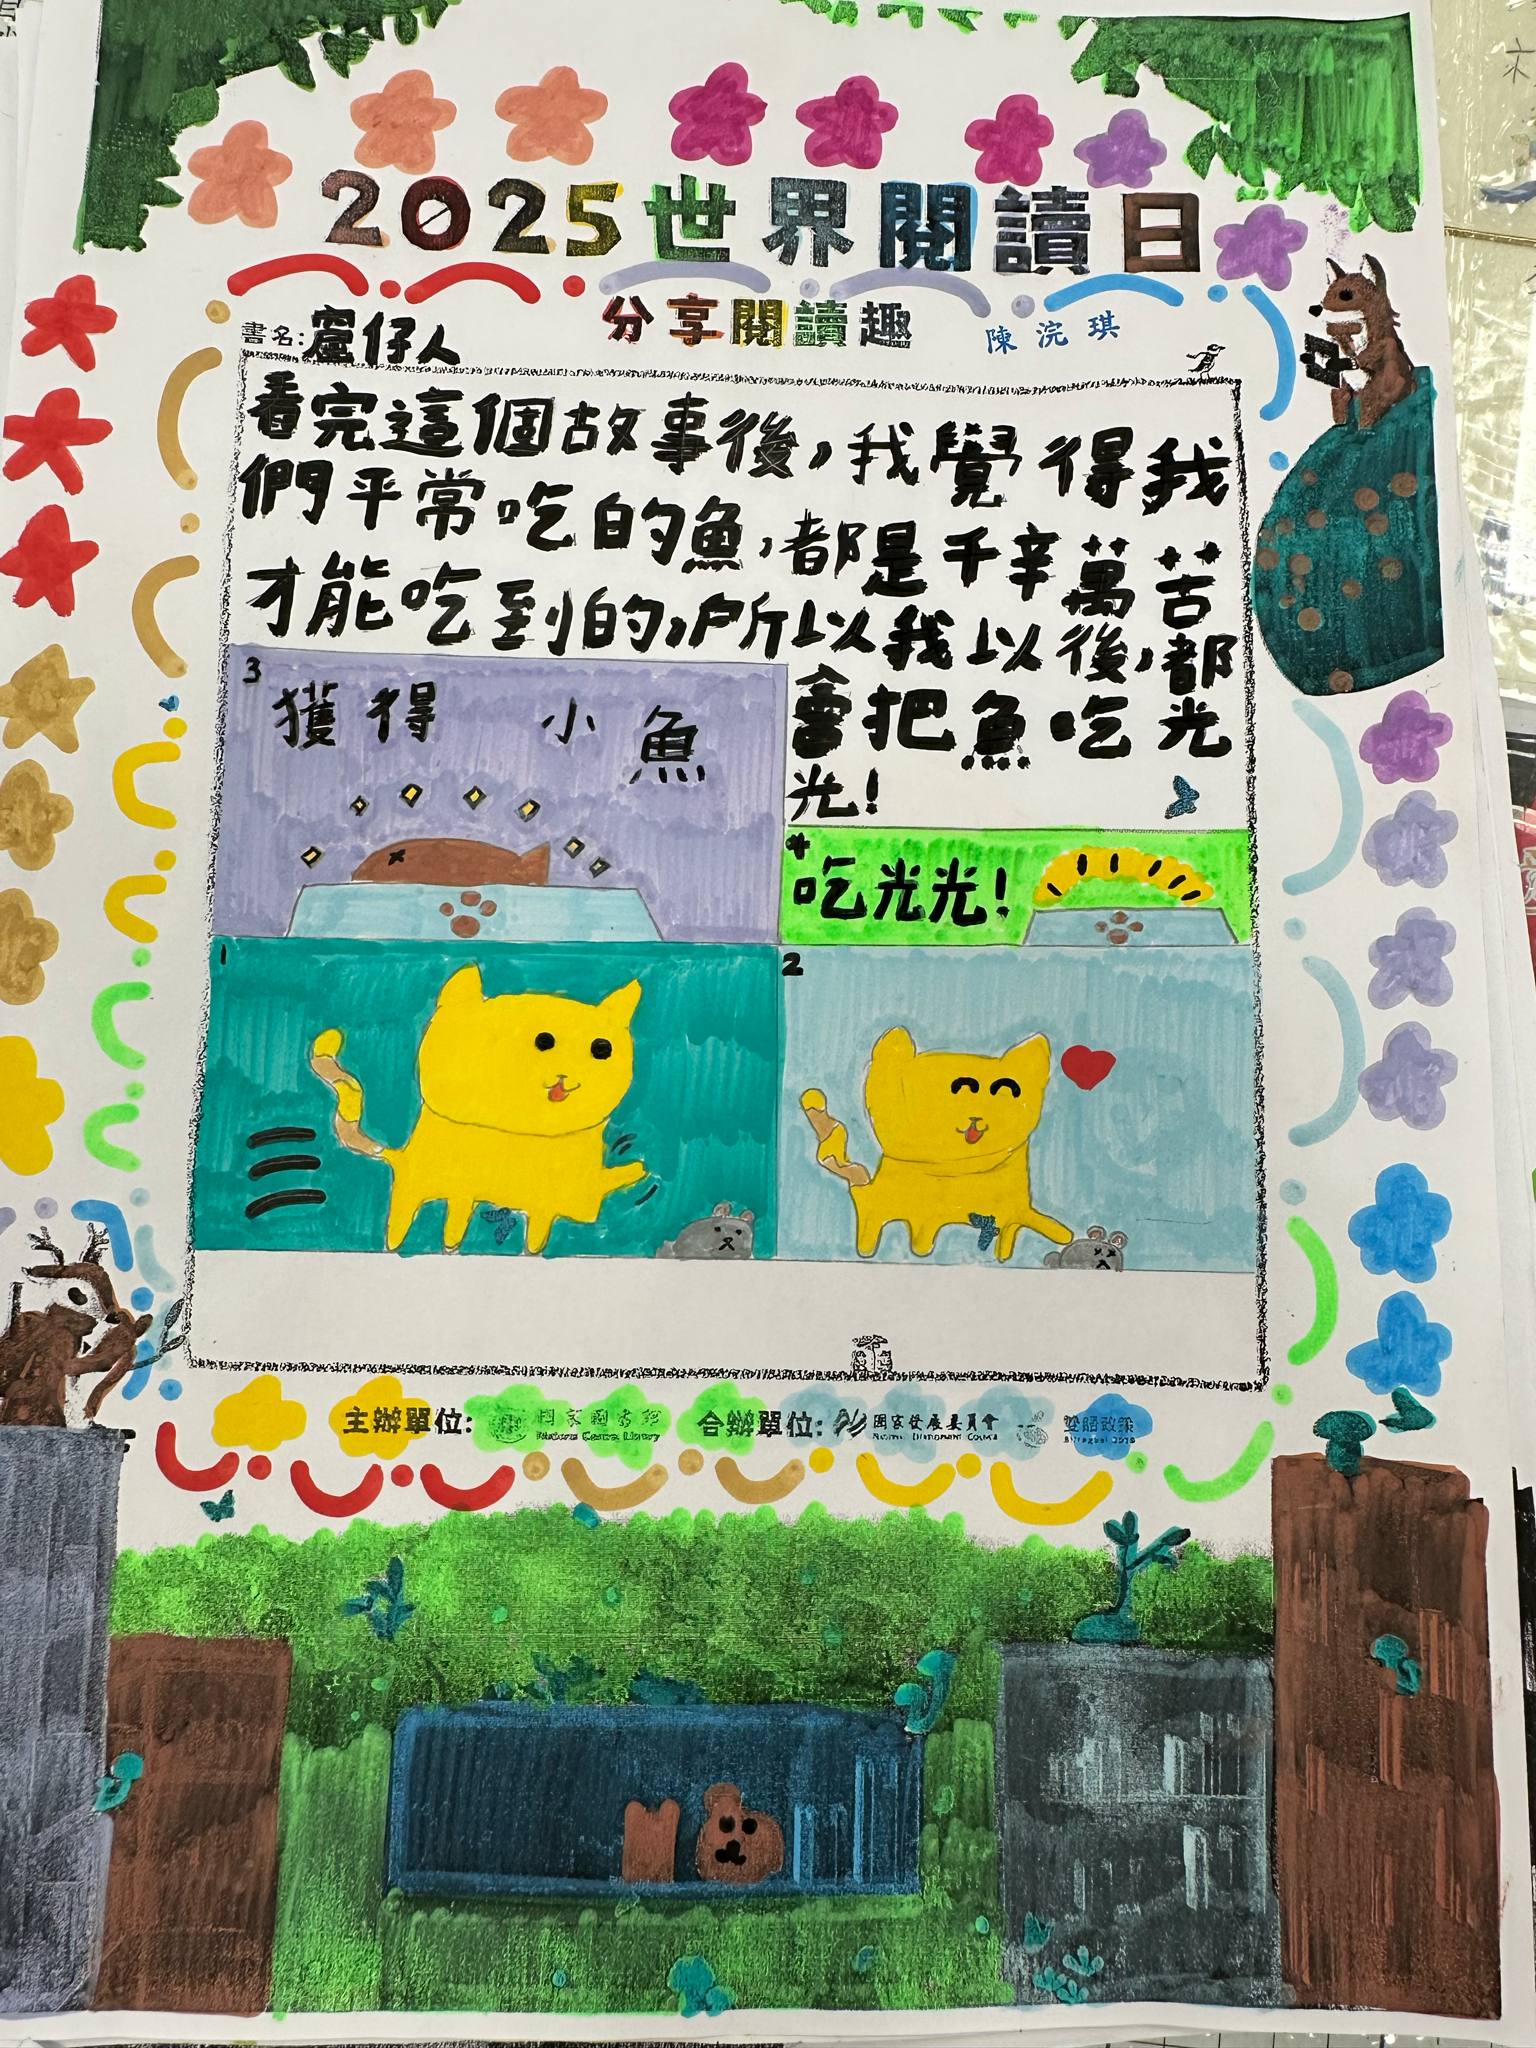 2025世界閱讀日
分享閱讀趣
陳浣琪
書名:窟仔人
看完這個故事後,我覺得我
們平常吃的魚,都是千辛萬苦
才能吃到的,所以我以後,都
會把魚吃光
光!
3
獲得 小魚
4
吃光光!
1
2
主辦單位: 國家圖書館
National Central Library
合辦單位: 國家發展委員會
National Development Council
雙語政策
Bilingual 2030